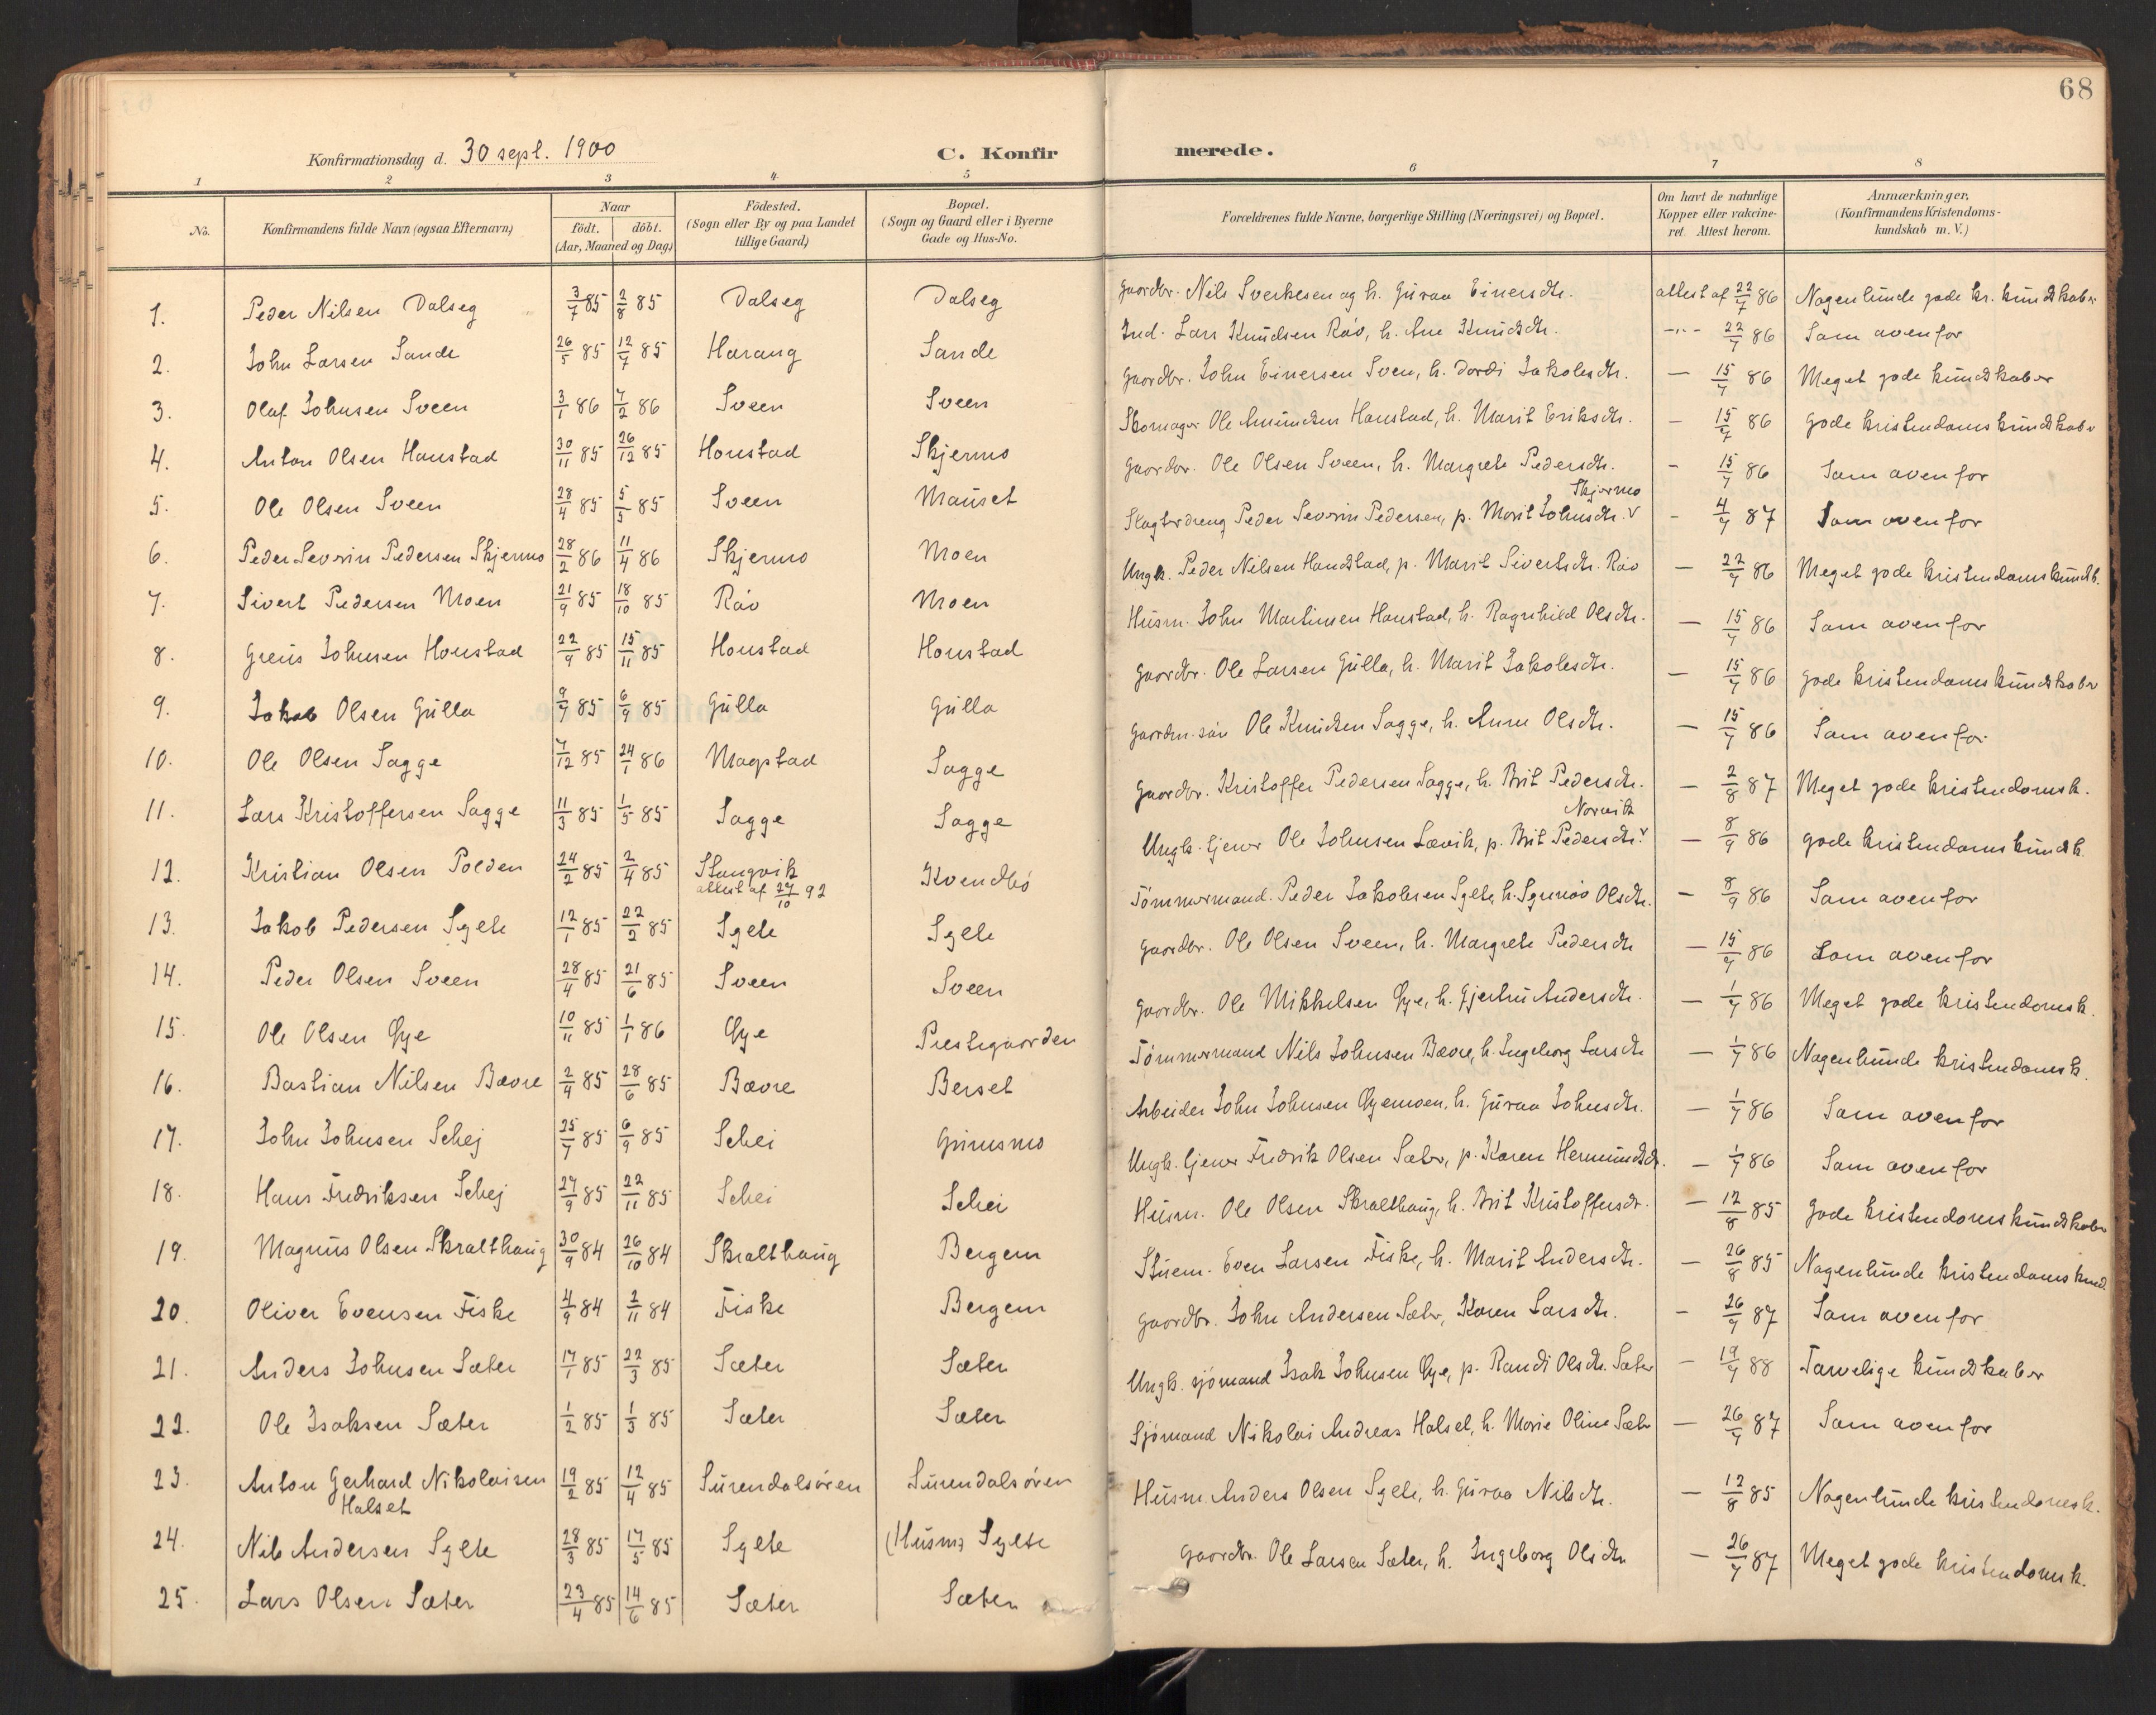 68
Konfirmationsdag d. 30 sept. 1900 C. Konfirmerede.
1 2 3 4 5 6 7 8
No. Konfirmandens fulde Navn (ogsaa Efternavn) Naar födt. döbt. (Aar, Maaned og Dag.) Födested. (Sogn eller By og paa Landet tillige Gaard) Bopæl. (Sogn og Gaard eller i Byerne Gade og Hus-No. Forældrenes fulde Navne, borgerlige Stilling (Næringsvei) og Bopæl. Om havt de naturlige Kopper eller vakcineret. Attest herom. Anmærkninger. (Konfirmandens Kristendomskundskab m. V.)
1. Peder Nilsen Dalseg 3/7 85 2/8 85 Dalseg Dalseg Gaardbr. Nils Sverkesen og h. Guraa Einersdtr. attest af 22/7 86 Nogenlunde gode kr. kundskaber
2. John Larsen Sande 26/5 85 12/7 85 Harang Sande Ind. Lars Knudsen Räv, h. Ane Knudsdtr. -"- 22/7 86 Som ovenfor
3. Olaf Johnsen Sveen 3/1 86 7/2 86 Sveen Sveen Gaardbr. John Einersen Sven, h. Dordi Jakobsdtr. — 15/7 86 Meget gode kundskaber
4. Anton Olsen Honstad 30/11 85 26/12 85 Honstad Skjermo Skomager Ole Amundsen Honstad, h. Marit Eriksdtr. — 15/7 86 gode kristendomskundskaber
5. Ole Olsen Sveen 28/4 85 5/5 85 Sveen Mauset Gaardbr. Ole Olsen Sveen, h. Margrete Pedersdtr. - 15/7 86 Som ovenfor
6. Peder Severin Pedersen Skjermo 28/2 86 11/4 86 Skjermo Moen Slagterdreng Peder Severin Pedersen, p. Marit Johnsdtr. v Skjermo - 4/7 87 Som ovenfor
7. Sivert Pedersen Moen 21/9 85 18/10 85 Räv Moen Ungk. Peder Nilsen Handstad, p. Marit Sivertsdtr. Räv — 22/7 86 Meget gode kristendomskundsk.
8. Greus Johnsen Honstad 22/9 85 15/11 85 Honstad Honstad Husm. John Martinsen Honstad, h. Ragnhild Olsdtr. — 15/7 86 Som ovenfor
9. Jakob Olsen Gulla 9/7 85 6/9 85 Gulla Gulla Gaardbr. Ole Larsen Gulla, h. Marit Jakobsdtr. — 15/7 86 gode kristendomskundskaber
10. Ole Olsen Sagge 7/12 85 24/1 86 Mogstad Sagge Gaardm. sön Ole Knudsen Sagge, h. Anne Olsdtr. — 15/7 86 Som ovenfor
11. Lars Kristoffersen Sagge 11/3 85 1/5 85 Sagge Sagge Gaardbr. Kristoffer Pedersen Sagge, h. Brit Pedersdtr. — 2/8 87 Meget gode kristendomsk.
12. Kristian Olsen Polden 24/2 85 2/4 85 Stangvik attest af 27/10 92 Kvendbö Ungk. tjener Ole Johnsen Lævik, p. Brit Pedersdtr. v Norvik — 8/9 86 gode kristendomskundsk.
13. Jakob Pedersen Sylte 12/1 85 22/2 85 Sylte Sylte Tömmermand. Peder Jakobsen Sylte, h. Synnöv Olsdtr. — 8/9 86 Som ovenfor
14. Peder Olsen Sveen 28/4 85 21/6 85 Sveen Sveen Gaardbr. Ole Olsen Sveen, h. Margrete Pedersdtr — 15/7 86 Som ovenfor
15. Ole Olsen Øye 10/11 85 1/1 86 Øye Prestegaarden Gaardbr. Ole Mikkelsen Øye, h. Gjertru Andersdtr. — 1/7 86 Meget gode kristendomsk.
16. Bastian Nilsen Bævre 2/4 85 28/6 85 Bævre Berset Tömmermand Nils Johnsen Bævre, h. Ingeborg Larsdtr — 1/7 86 Nogenlunde kristendomsk.
17. John Johnsen Schej 25/7 85 6/9 85 Schei Grimsmo Arbeider John Johnsen Øyemoen, h. Guraa Johnsdtr. — 1/7 86 Som ovenfor
18. Hans Fredriksen Schej 27/9 85 22/11 85 Schei Schei Ungk. tjener Fredrik Olsen Sæter, p. Karen Hermundsdtr. — 1/7 86 Som ovenfor
19. Magnus Olsen Skralthaug 30/9 84 26/10 84 Skralthaug Bergem Husm. Ole Olsen Skralthaug, h. Brit Kristoffersdtr. — 12/8 85 gode kristendomskundskaber
20. Oliver Evensen Fiske 4/9 84 2/11 84 Fiske Bergem Stuem. Even Larsen Fiske, h. Marit Andersdtr. — 26/8 85 Nogenlunde kristendomskund.
21. Anders Johnsen Sæter 17/1 85 22/3 85 Sæter Sæter Gaardbr. John Andersen Sæter, Karen Larsdtr. - 26/7 87 Som ovenfor
22. Ole Isaksen Sæter 1/2 85 1/3 85 Sæter Sæter Ungk. sjömand Isak Johnsen Øye, p. Randi Olsdtr. Sæter — 19/7 88 Tarvelige kundskaber
23. Anton Gerhard Nikolaisen Halset 19/2 85 12/4 85 Surendalsören Surendalsören Sjömand Nikolai Andreas Halset, h. Marie Oline Sæter — 26/7 87 Som ovenfor
24. Nils Andersen Sylte 28/3 85 17/5 85 Sylte (Husm) Sylte Husm. Anders Olsen Sylte, h. Guraa Nilsdtr. — 12/8 85 Nogenlunde kristendomsk.
25. Lars Olsen Sæter 23/4 85 14/6 85 Sæter Sæter Gaardbr. Ole Larsen Sæter, h. Ingeborg Olsdtr — 26/7 87 Meget gode kristendomsk.